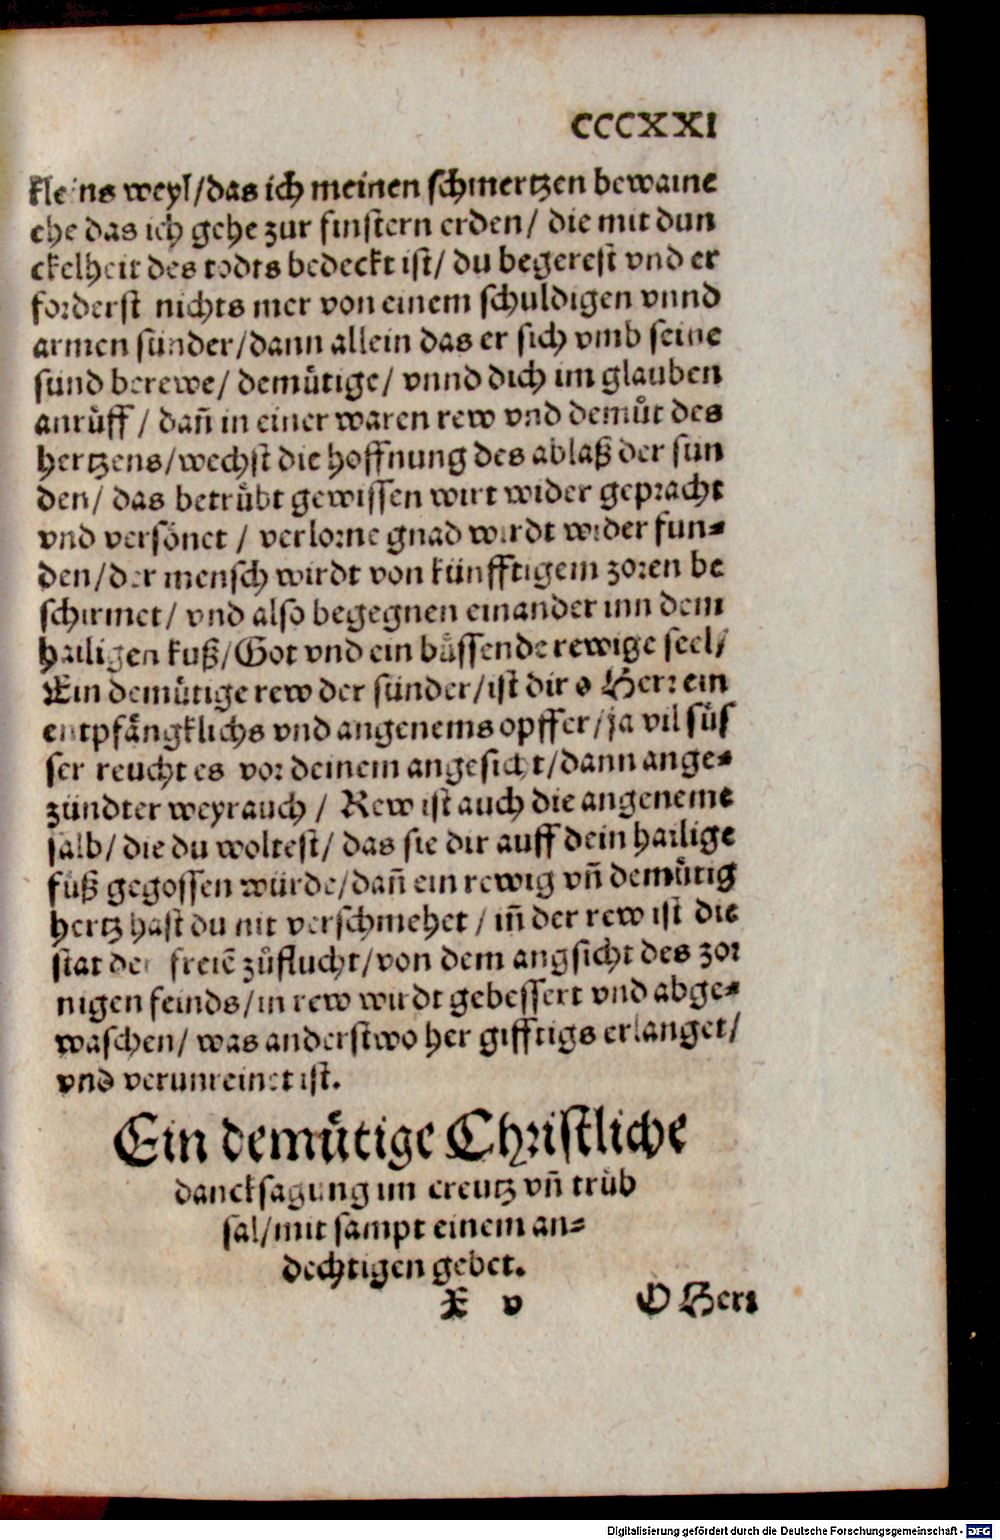 CCCXXI
kleins weyl/das ich meinen schmertzen bewaine
ehe das ich gehe zur finstern erden/ die mit dun
ckelheit des todts bedeckt ist/ du begerest vnd er
forderst nichts mer von einem schuldigen vnnd
armen sünder/dann allein das er sich vmb seine
sünd berewe/ demuͤtige/ vnnd dich im glauben
anruͤff / dañ in einer waren rew vnd demuͦt des
hertzens/wechst die hoffnung des ablaß der sün
den/ das betruͤbt gewissen wirt wider gepracht
vnd versönet / verlorne gnad wirdt wider fun⸗
den/der mensch wirdt von künfftigem zoren be
schirmet/ vnd also begegnen einander inn dem
hailigen kuß/Got vnd ein buͤssende rewige seel/
Ein demuͤtige rew der sünder/ist dir o Herr ein
entpfängklichs vnd angenems opffer/ja vil suͤs
ser reucht es vor deinem angesicht/dann ange⸗
zündter weyrauch / Rew ist auch die angeneme
salb/ die du woltest/ das sie dir auff dein hailige
fuͤß gegossen würde/dañ ein rewig vñ demuͤtig
hertz hast du nit verschmehet / iñ der rew ist die
stat der freiē zuͦflucht/von dem angsicht des zor
nigen feinds/in rew wirdt gebessert vnd abge⸗
waschen/ was anderstwo her gifftigs erlanget/
vnd verunreinet ist.
Ein demuͤtige Christliche
dancksagung im creutz vñ trüb
sal/mit sampt einem an⸗
dechtigen gebet.
X v O Herr
Digitalisierung gefördert durch die Deutsche Forschungsgemeinschaft - DFG